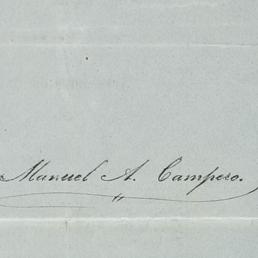 Manuel A. Campero.